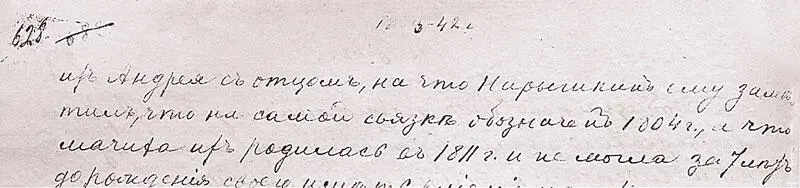 628.
их Андрея съ отцомъ, на что Нарышкинъ ему замѣ
тилъ, что на самой связкѣ обозначенъ 1804 г., а что
мачиха ихъ родилась въ 1811 г. и не могла за 7 лѣтъ
до рожденія своего